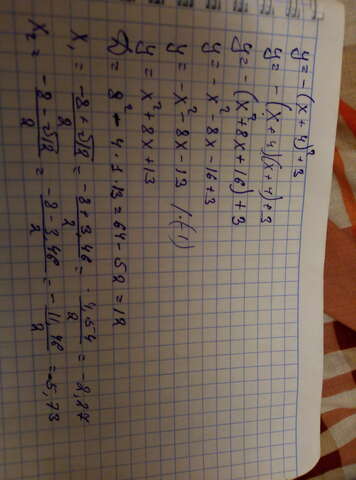 y = -(x+4)²+3
y = -(x+4)(x+4)+3
y = -(x²+8x+16)+3
y = -x²-8x-16+3
y = -x²-8x-13 /·(-1)
y = x²+8x+13
D = 8²-4·1·13 = 64-52 = 12
x₁ = (-8+√12)/2 = (-8+3,46)/2 = -4,54/2 = -2,27
x₂ = (-8-√12)/2 = (-8-3,46)/2 = -11,46/2 = -5,73